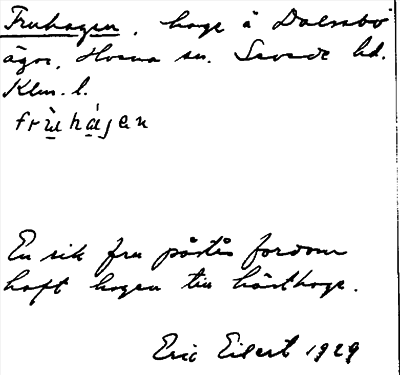 Fruhagen, hage å Dalsebo
ägor, Horna sn. Sevede hd.
Klm. l.
frùhájen
En rik fru påstås fordom
haft hagen till hästhage.
Eric Eilert 1929